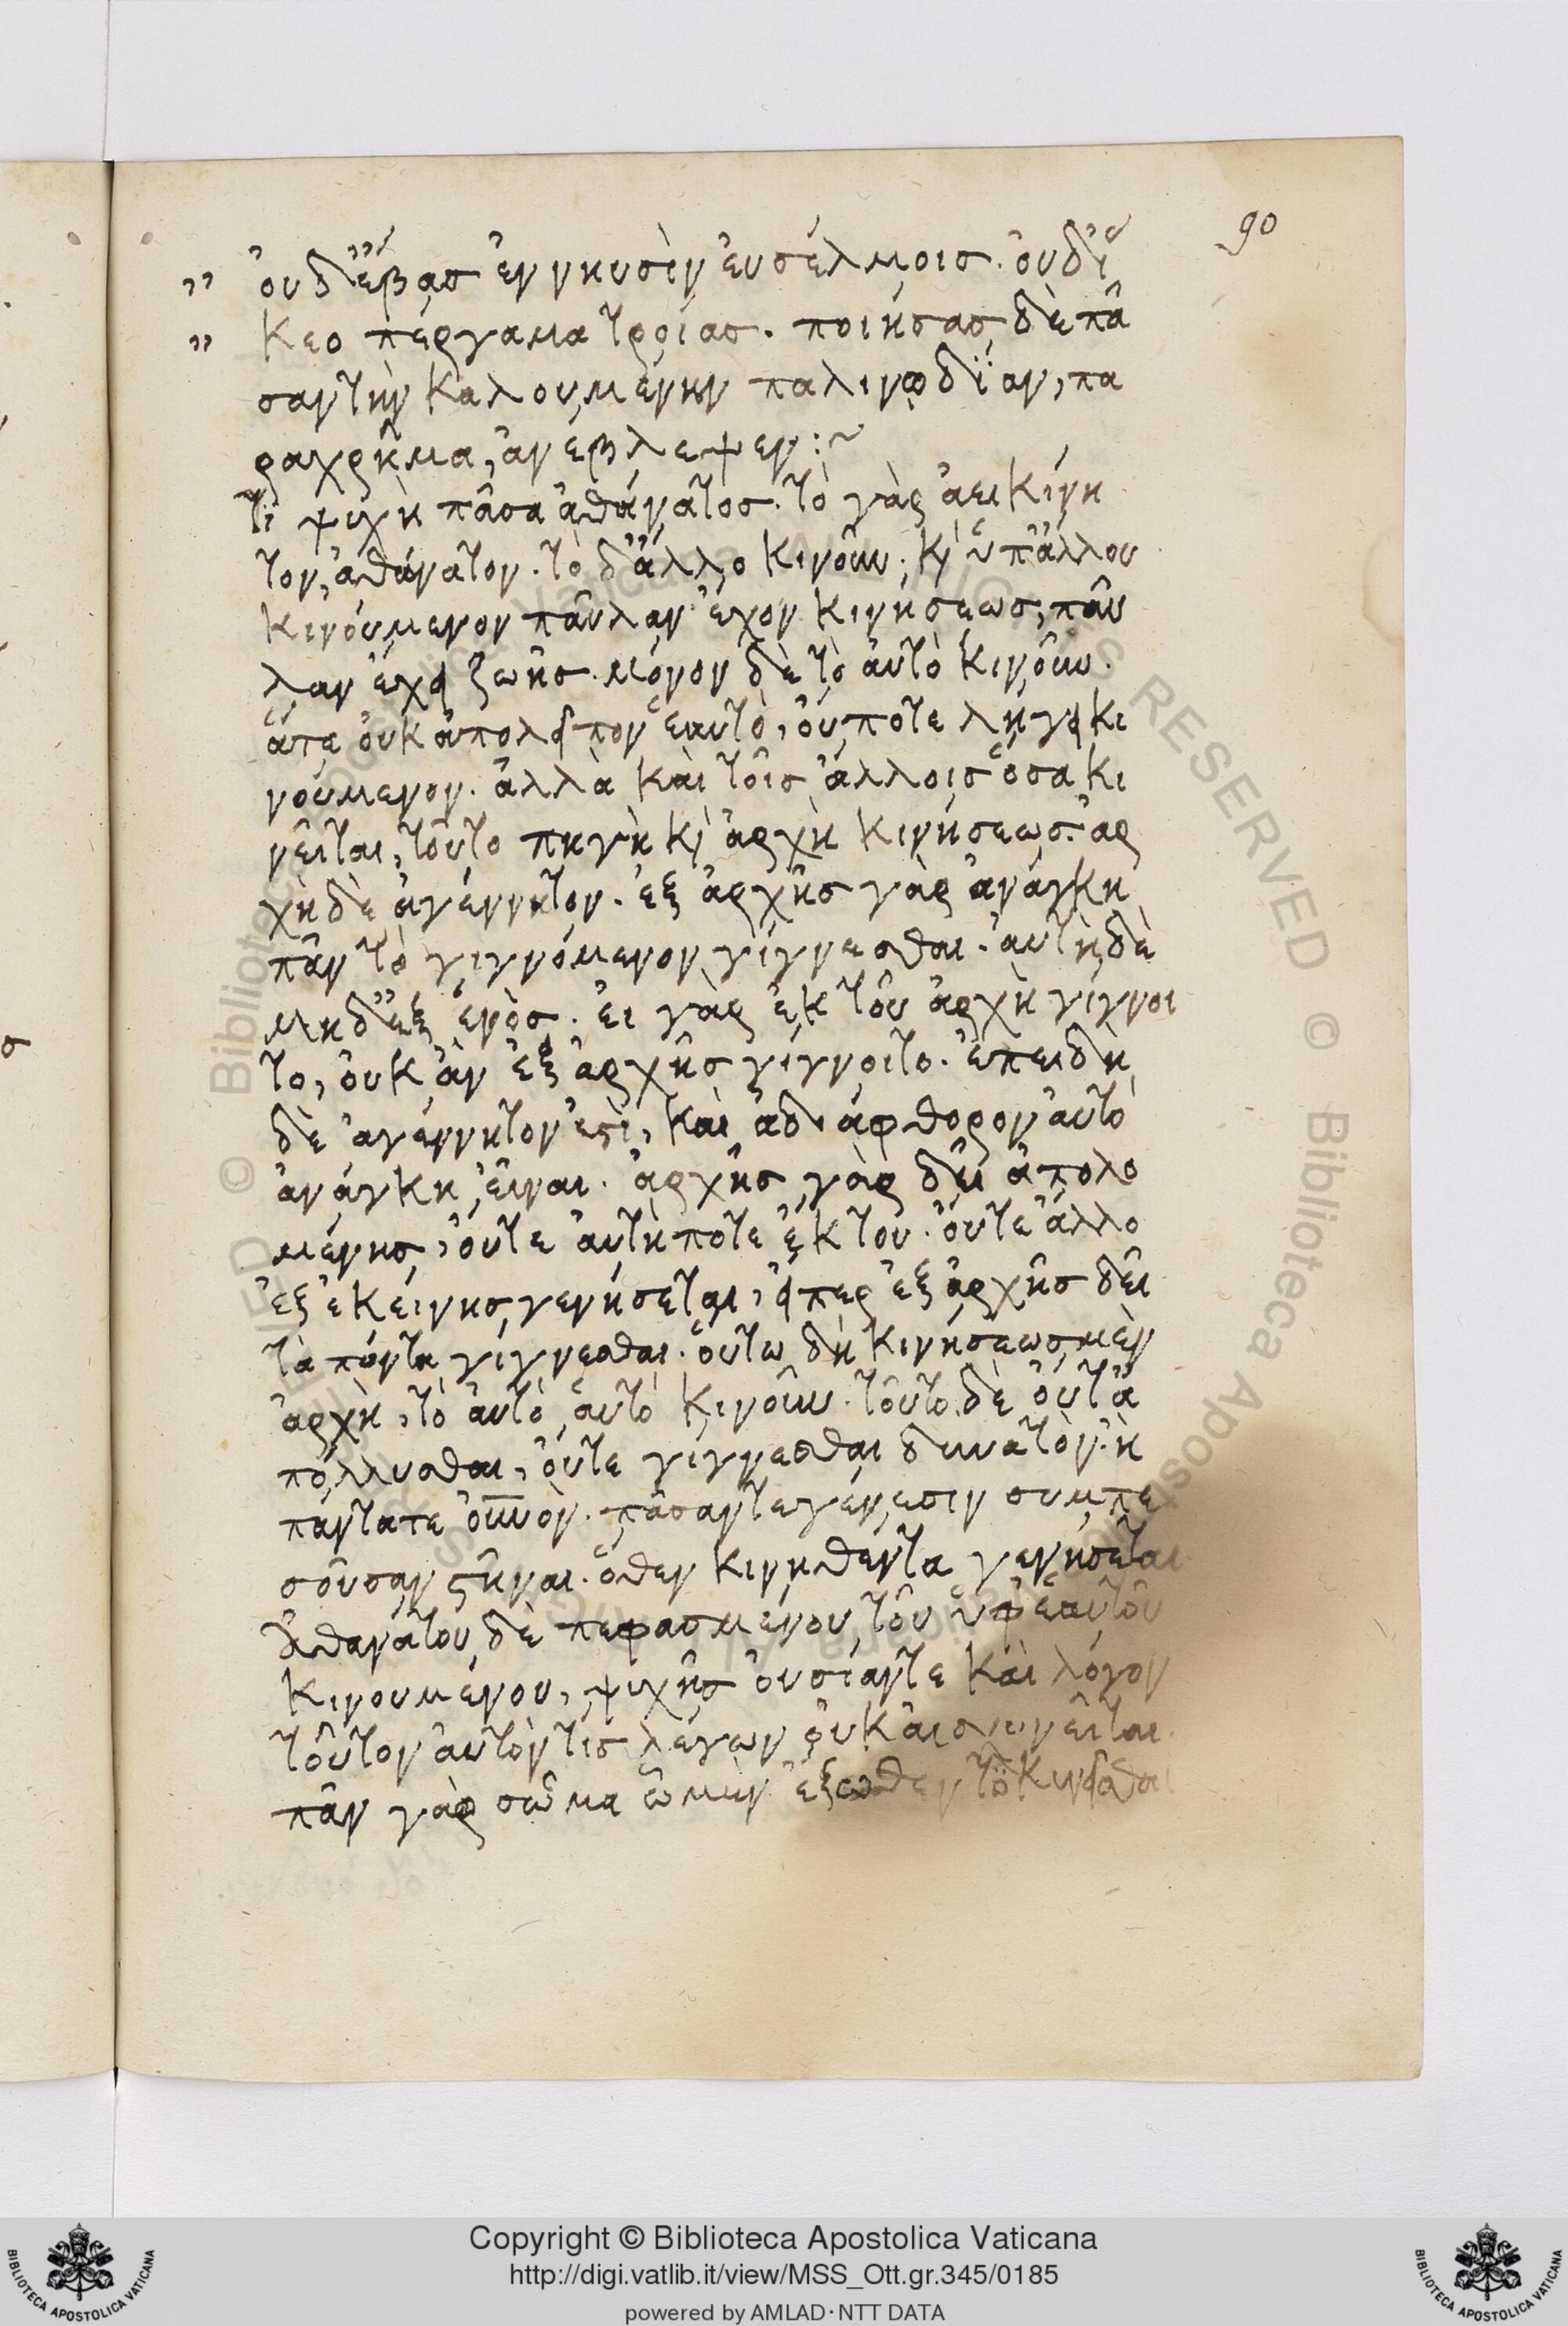 90
" οὐδ' ἔβας ἐν νηυσὶν ἐυσέλμοις. οὐδ' ἵ
" κεο πέργαμα τροίας. ποιήσας δὲ πᾶ
σαν τὴν καλουμένην παλινῳδΐαν, πα
ραχρῆμα, ἀνέβλεψεν :~
Τϊ ψυχὴ πᾶσα ἀθάνατος. τὸ γὰρ ἀεικίνη
τον, ἀθάνατον. τὸ δ' ἄλλο κινοῦν, κὶ ὑπ' ἄλλου
κινούμενον παῦλαν ἔχον κινήσεως, παῦ
λαν ἔχει ζωῆς. μόνον δὲ τὸ αὐτὸ κινοῦν.
ἅτε οὐκ ἀπολεῖπον ἑαυτὸ, οὔποτε λήγει κι
νούμενον. ἀλλὰ καὶ τοῖς ἄλλοις ὅσα κι
νεῖται, τοῦτο πηγὴ κὶ ἀρχὴ κινήσεως. ἀρ
χὴ δὲ ἀγέννητον. ἐξ ἀρχῆς γὰρ ἀνάγκη
πᾶν τὸ γιγνόμενον γίγνεσθαι. αὐτὴ δὲ
μηδ' ἐξ ἑνὸς. εἰ γὰρ ἐκ τοῦ ἀρχὴ γίγνοι
το, οὐκ ἂν ἐξ ἀρχῆς γίγνοιτο. ἐπειδὴ
δὲ ἀγέννητον ἐστὶ, καὶ ἀδιάφθορον αὐτὸ
ἀνάγκη εἶναι. ἀρχῆς γὰρ δεῖ ἀπολο
μένης, οὔτε αὐτὴ ποτε ἐκ του. οὔτε ἄλλο
ἐξ ἐκείνης γενήσεται, εἴπερ ἐξ ἀρχῆς δεῖ
τὰ πάντα γίγνεσθαι. οὕτω δὴ κινήσεως μὲν
ἀρχὴ, τὸ αὐτὸ αὑτὸ κινοῦν. τοῦτο δὲ οὔτ' ἀ
πόλλυσθαι, οὔτε γίγνεσθαι δυνατὸν. ἢ
πάντα τε οὐνὸν. πᾶσαν τε γένεσιν συμπε
σοῦσαν στῆναι. ὅθεν κινηθέντα γενήσεται
ἀθανάτου δὲ πεφασμένου τοῦ ὑφ' ἑαυτοῦ
κινουμένου, ψυχῆς οὐσίαν τε καὶ λόγον
τοῦτον αὐτόν τις λέγων οὐκ αἰσχυνεῖται.
πᾶν γὰρ σῶμα ὧ μὲν ἔξωθεν τὸ κινεῖσθαι
Copyright © Biblioteca Apostolica Vaticana
http://digi.vatlib.it/view/MSS_Ott.gr.345/0185
powered by AMLAD·NTT DATA